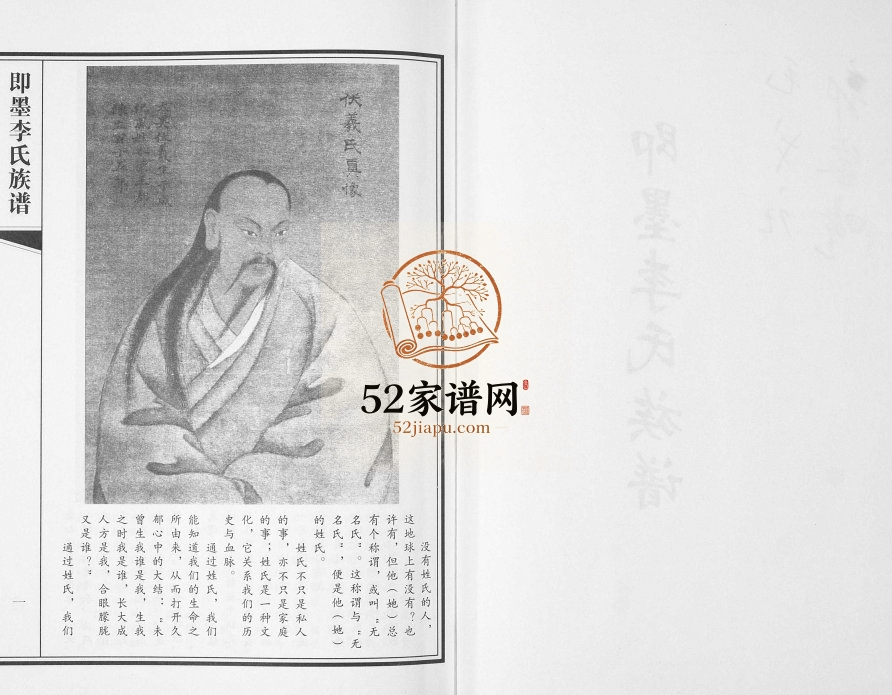 即墨李氏族谱
伏羲氏真像
没有姓氏的人，
这地球上有没有？也
许有，但他（她）总
有个称谓，或叫“无
名氏”。这称谓与“无
名氏”，便是他（她）
的姓氏。
姓氏不只是私人
的事，亦不只是家庭
的事；姓氏是一种文
化，它关系我们的历
史与血脉。
通过姓氏，我们
能知道我们的生命之
所由来，从而打开久
郁心中的大结：“未
曾生我谁是我，生我
之时我是谁，长大成
人方是我，合眼朦胧
又是谁？”
通过姓氏，我们
一
52家谱网
52jiapu.com
即墨李氏族谱